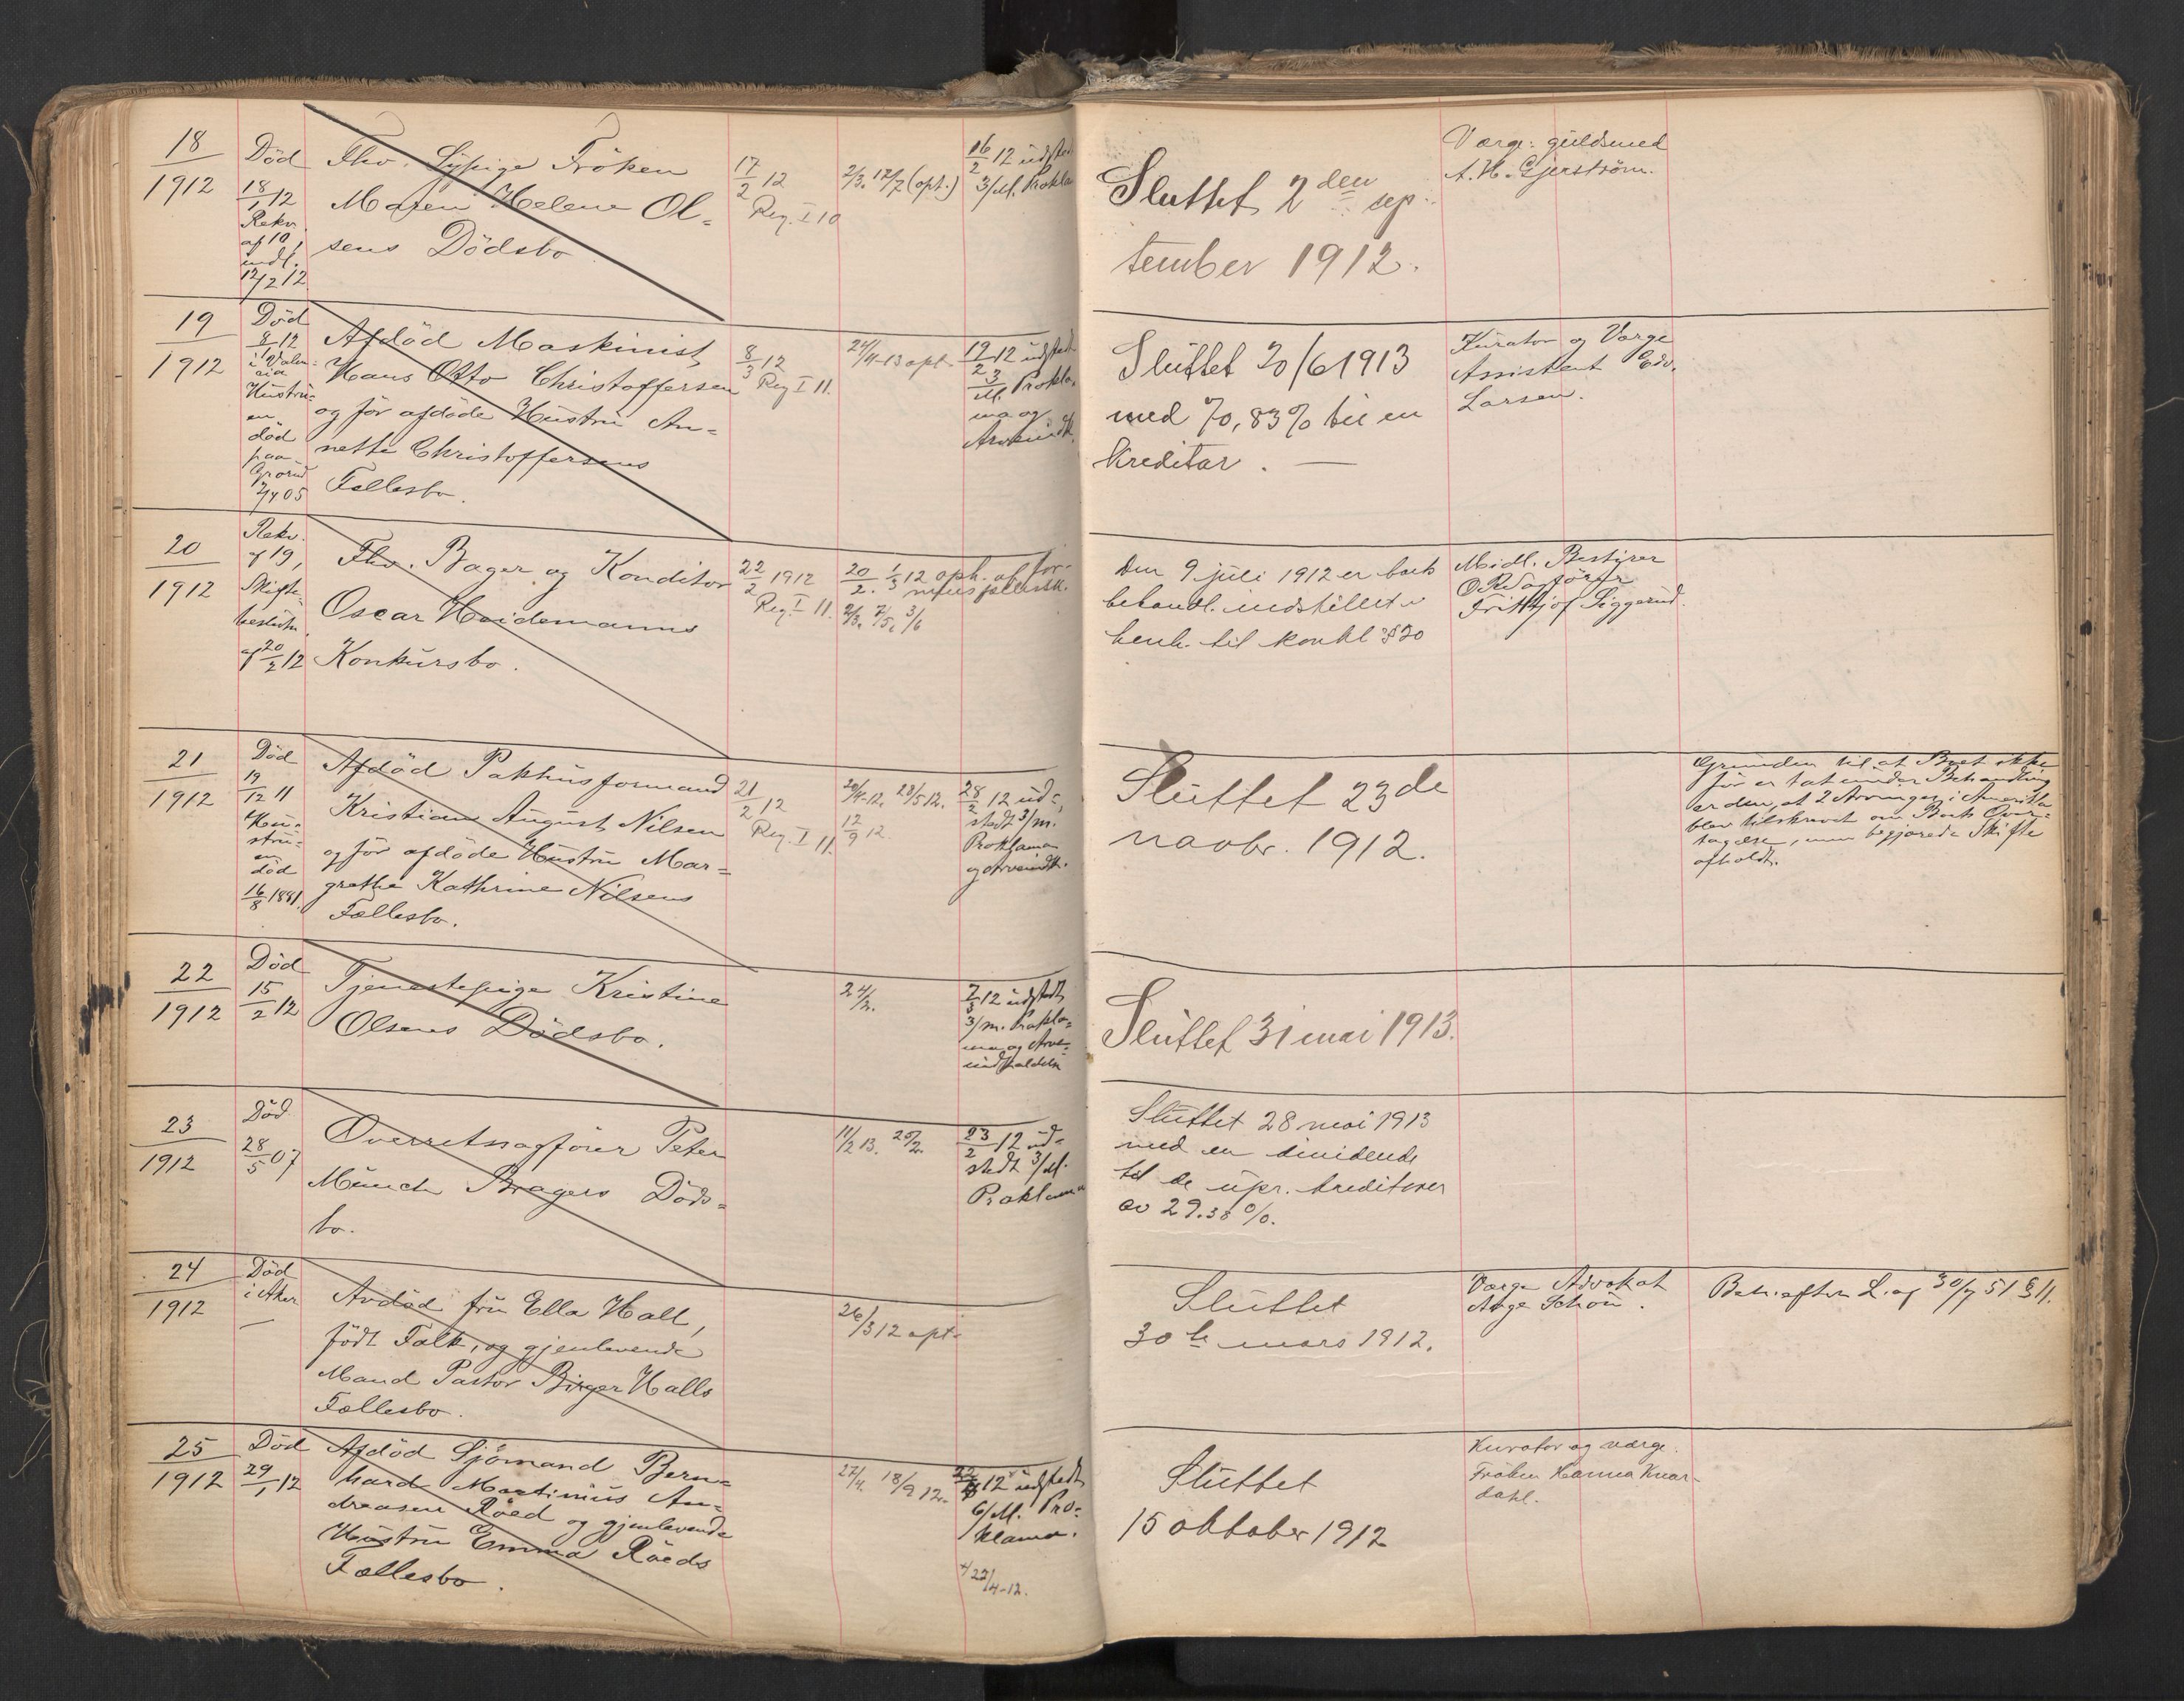 18
1912
Död
18/1 12
Rekv.
af 10,
indl.
12/2 12
Fhv. Sypige Fröken
Maren Helene Ol=
sens Dödsbo
17/2 12
Reg. I 10
2/3. 17/7 (opt.)
16/2 12 udsted
3/M. Prokla
Sluttet 2den sep=
tember 1912.
Værge: guldsmed
A. H. Gjerström.
19
1912
Död
8/1 12
i Valen=
cia
Hustru=
en
död
paa
Grorud
05
Afdöd Maskinist
Hans Otto Christoffersen
og för afdöde Hustru An=
nette Christoffersens
Fællesbo.
8/3 12
Reg I 11.
24/4-13 opt.
19/2 12 udstedt
3/M. Prokla=
ma og
Arveindk.
Sluttet 20/6 1913
med 70,83% til en
kreditor. —
Kurator og Værge
Assistent Edv.
Larsen.
20
1912
Rekv.
af 19,
Skifte=
beslutn.
af 20/2 12
Fhv. Bager og Konditor
Oscar Heidemanns
Konkursbo.
22/2 1912
Reg. I 11.
20/2. 1/3 12 oph. af for-
2/3. 7/5. 3/6
Den 9 juli 1912 er boets
behandl. indstillet i
henh. til konkl § 20
Midl. Bestyrer
O.R.Sagförer
Frithjof Siggerud.
21
1912
Död
19/12 11
Hu=
stru=
en
död
16/8 1881.
Afdöd Pakhusformand
Kristian August Nilsen
og för afdöde Hustru Mar=
grethe Kathrine Nilsens
Fællesbo.
21/2 12
Reg. I 11.
20/4-12. 23/5 12.
12/9 12
28/2 12 ud=
stedt 3/m.
Proklama
og Arveindk.
Sluttet 23de
novbr. 1912.
Grunden til at Boet ikke
för er tat under Behandling
er den, at 2 Arvinger i Amerika
blev tilskrevet om Boets Over=
tagelse, men begjærede Skifte
afholdt.
22
1912
Död
15/2 12
Tjenestepige Kristine
Olsens Dödsbo.
24/2.
7/3 12 udstedt
3/m. Prokla=
ma og Arve=
indkaldelse
Sluttet 31 mai 1913.
23
1912
Död
28/5 07
Overretssagförer Peter
Münch Bragers Döds=
bo.
11/2 13. 25/2.
23/2 12 ud=
stedt 3/M.
Proklama
Sluttet 28 mai 1913
med en dividende
til de upr. kreditorer
av 29.38 %.
24
1912
Död
i Aker
—
Avdöd fru Ella Hall,
födt Falk, og gjenlevende
Mand Pastor Birger Halls
Fællesbo.
26/3 12 opt.
Sluttet
30te mars 1912.
Værge Advokat
Aage Schou.
Beh. efter L. af 30/7 51 § 11.
25
1912
Död
29/1 12
Afdöd Sjömand Bern=
hard Martinius An=
dreasen Röed og gjenlevende
Hustru Emma Röeds
Fællesbo.
27/4. 18/9 12.
12 udstedt
6/M. Pro=
klama.
+ 22/4-12.
Sluttet
15 oktober 1912
Kurator og værge:
Fröken Hanna Knar-
dahl.